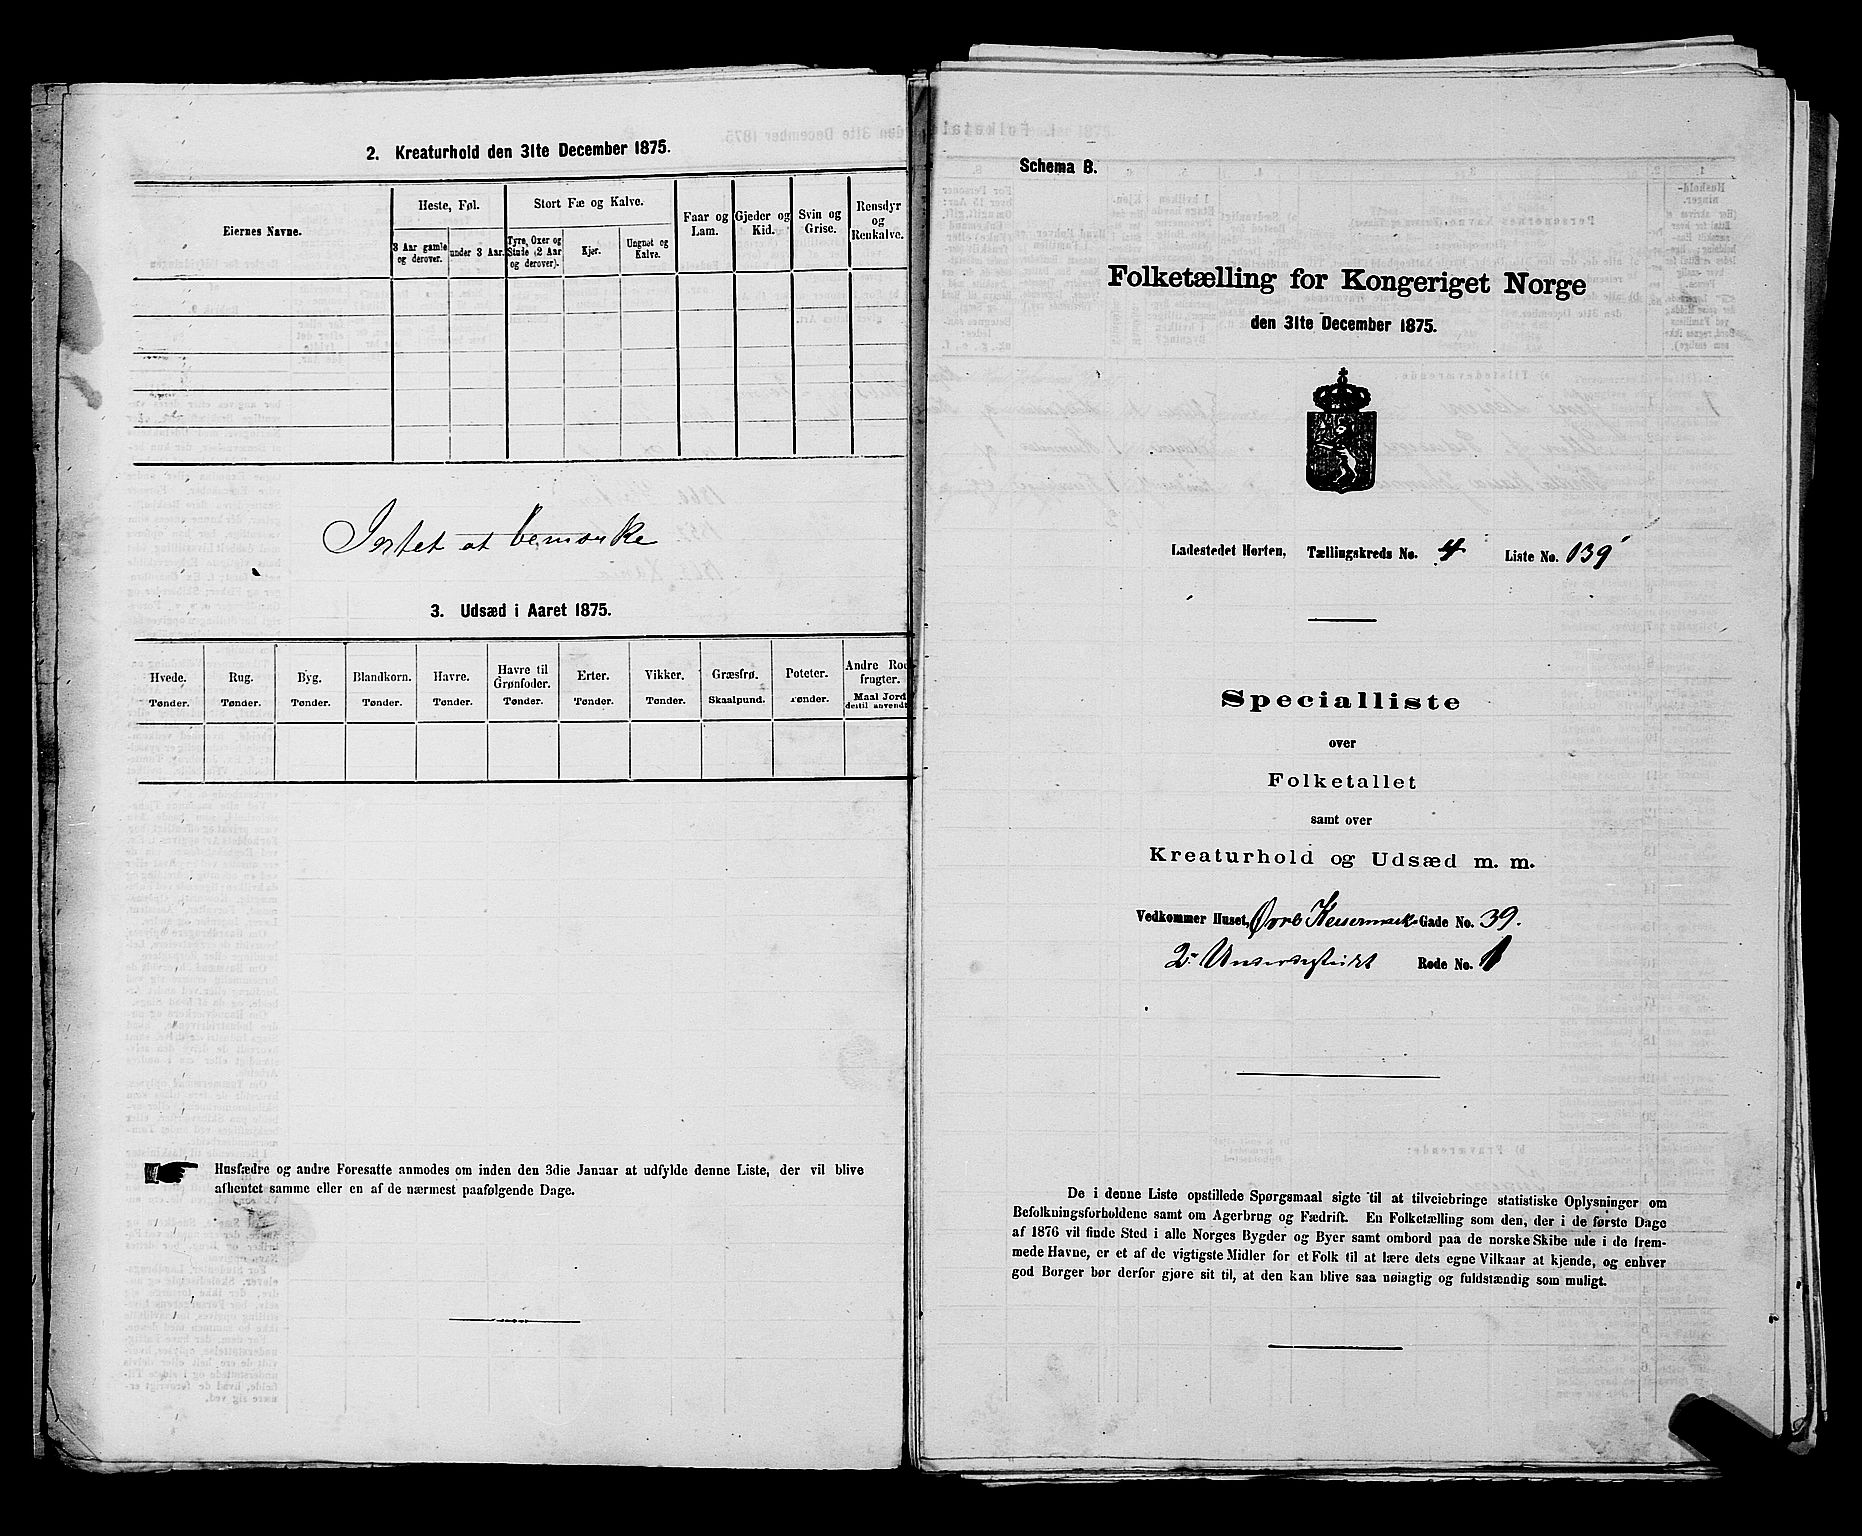 2. Kreaturhold den 31te December 1875.
Eiernes Navne.
Heste, Føl.
3 Aar gamle og derover.
under 3 Aar.
Stort Fæ og Kalve.
Tyre, Oxer og Stude (2 Aar og derover).
Kjør.
Ungnøt og Kalve.
Faar og Lam.
Gjeder og Kid.
Svin og Grise.
Rensdyr og Renkalve.
Intet at bemærke
3. Udsæd i Aaret 1875.
Hvede. Rug. Byg. Blandkorn. Havre. Havre til Grønfoder. Erter. Vikker. Græsfrø. Poteter. Andre Rodfrugter.
Tønder. Tønder. Tønder. Tønder. Tønder. Tønder. Tønder. Tønder. Skaalpund. Tønder. Maal Jord dertil anvendt
Husfædre og andre Foresatte anmodes om inden den 3die Januar at udfylde denne Liste, der vil blive
afhentet samme eller en af de nærmest paafølgende Dage.
Schema B.
Folketælling for Kongeriget Norge
den 31te December 1875.
Ladestedet Horten, Tællingskreds No. 4 Liste No. 139
Specialliste
over
Folketallet
samt over
Kreaturhold og Udsæd m. m.
Vedkommer Huset, Gade No. 39.
Rode No. 1
De i denne Liste opstillede Spørgsmaal sigte til at tilveiebringe statistiske Oplysninger om
Befolkningsforholdene samt om Agerbrug og Fædrift. En Folketælling som den, der i de første Dage
af 1876 vil finde Sted i alle Norges Bygder og Byer samt ombord paa de norske Skibe ude i de frem-
mede Havne, er et af de vigtigste Midler for et Folk til at lære dets egne Vilkaar at kjende, og enhver
god Borger bør derfor gjøre sit til, at den kan blive saa nøiagtig og fuldstændig som muligt.